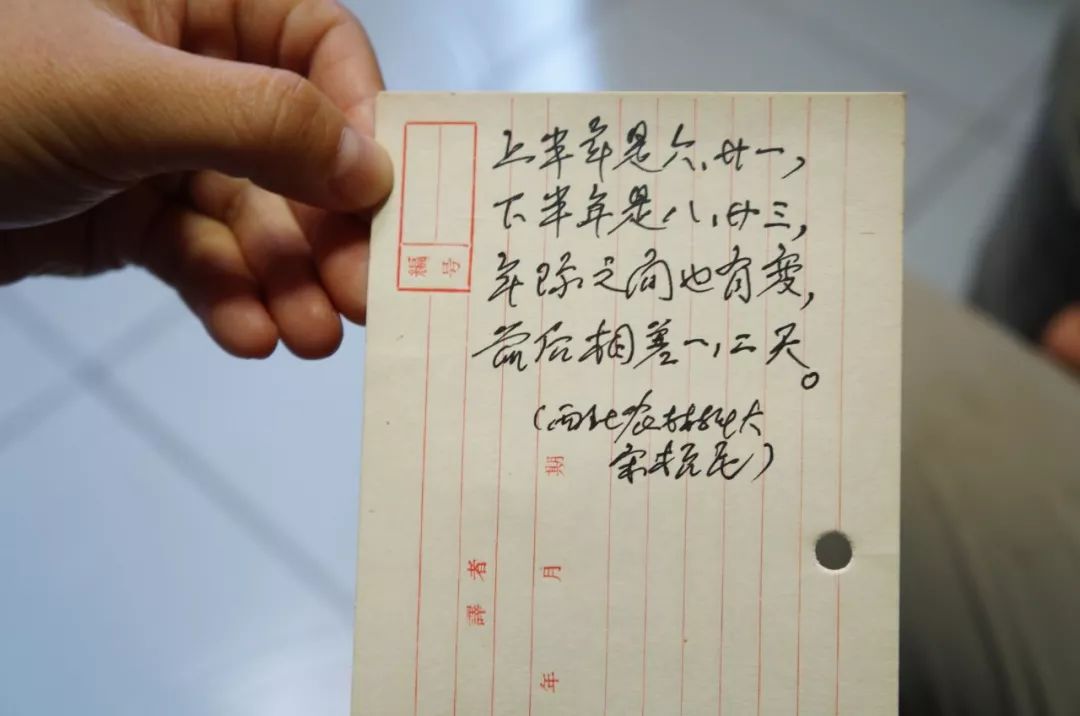 編号
上半年是六、廿一,
下半年是八、廿三,
年际之间也有变,
前后相差一,二天。
(西北农林科大
譯者
年 月 期